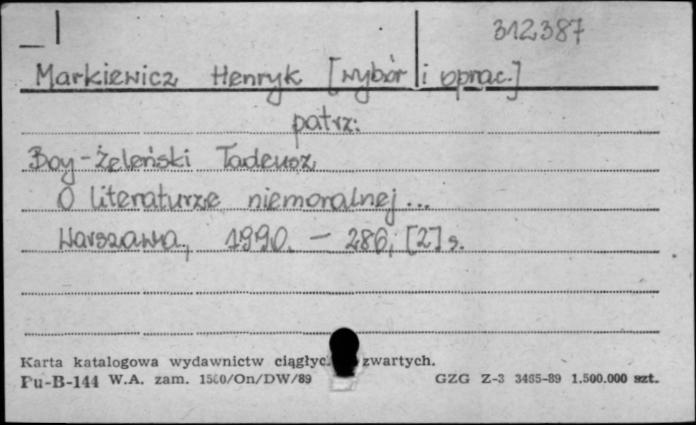 312387
Markiewicz Henryk [wybór i oprac.]
patrz:
Boy-Żeleński Tadeusz
O literaturze niemoralnej...
Warszawa, 1990. - 286, [2] s.
Karta katalogowa wydawnictw zwartych.
Pu-B-144 W.A. zam. 1500/On/DW/89 GZG Z-3 3465-89 1.500.000 szt.